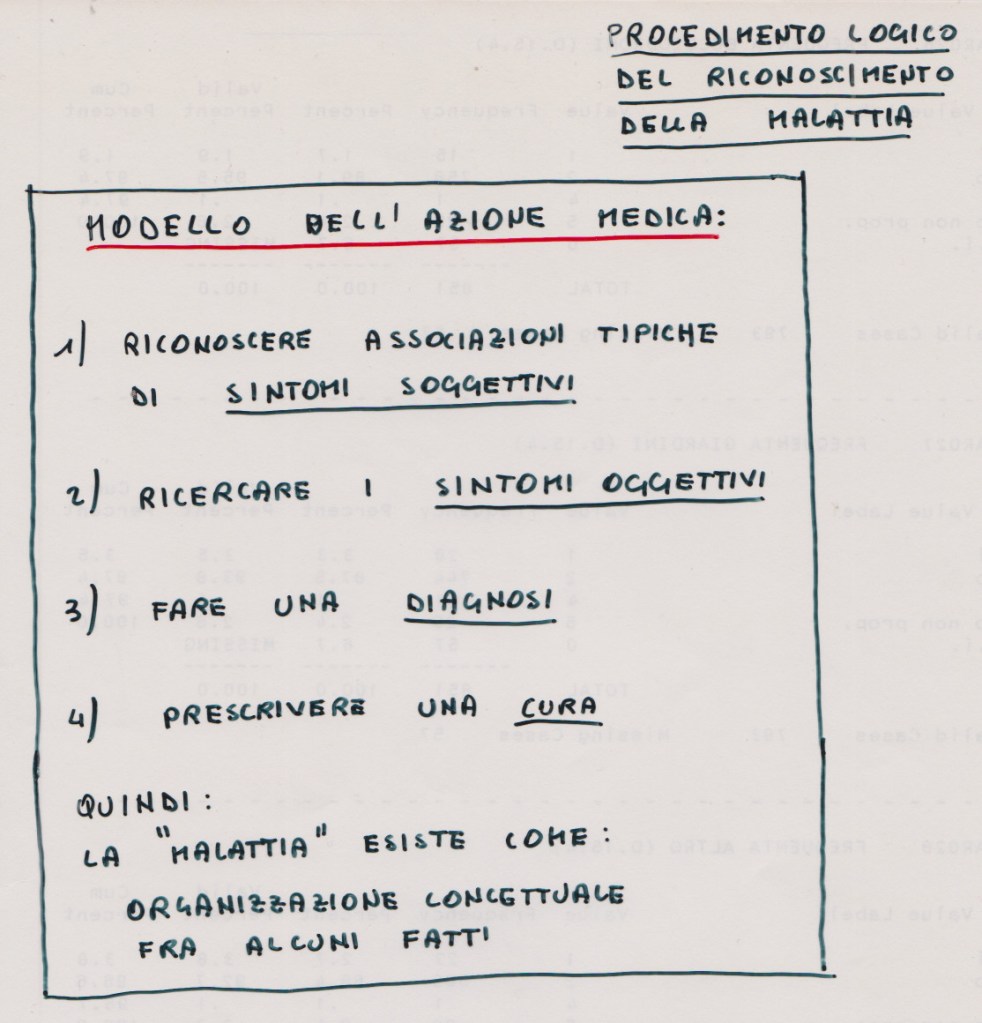 PROCEDIMENTO LOGICO
DEL RICONOSCIMENTO
DELLA MALATTIA
MODELLO DELL' AZIONE MEDICA:
1) RICONOSCERE ASSOCIAZIONI TIPICHE
DI SINTOMI SOGGETTIVI
2) RICERCARE I SINTOMI OGGETTIVI
3) FARE UNA DIAGNOSI
4) PRESCRIVERE UNA CURA
QUINDI:
LA "MALATTIA" ESISTE COME:
ORGANIZZAZIONE CONCETTUALE
FRA ALCUNI FATTI